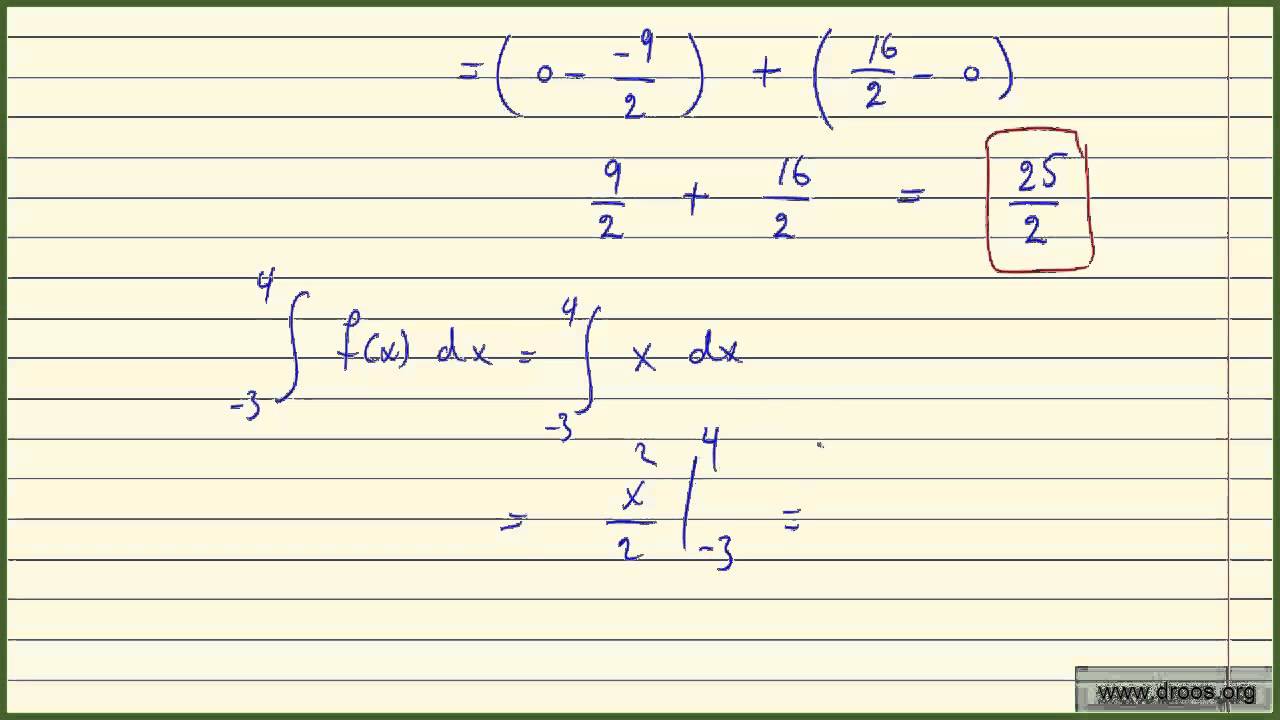 = ( 0 - -9/2 ) + ( 16/2 - 0 )
9/2 + 16/2 = 25/2
∫₋₃⁴ f(x) dx = ∫₋₃⁴ x dx
= x²/2 |₋₃⁴ =
www.droos.org